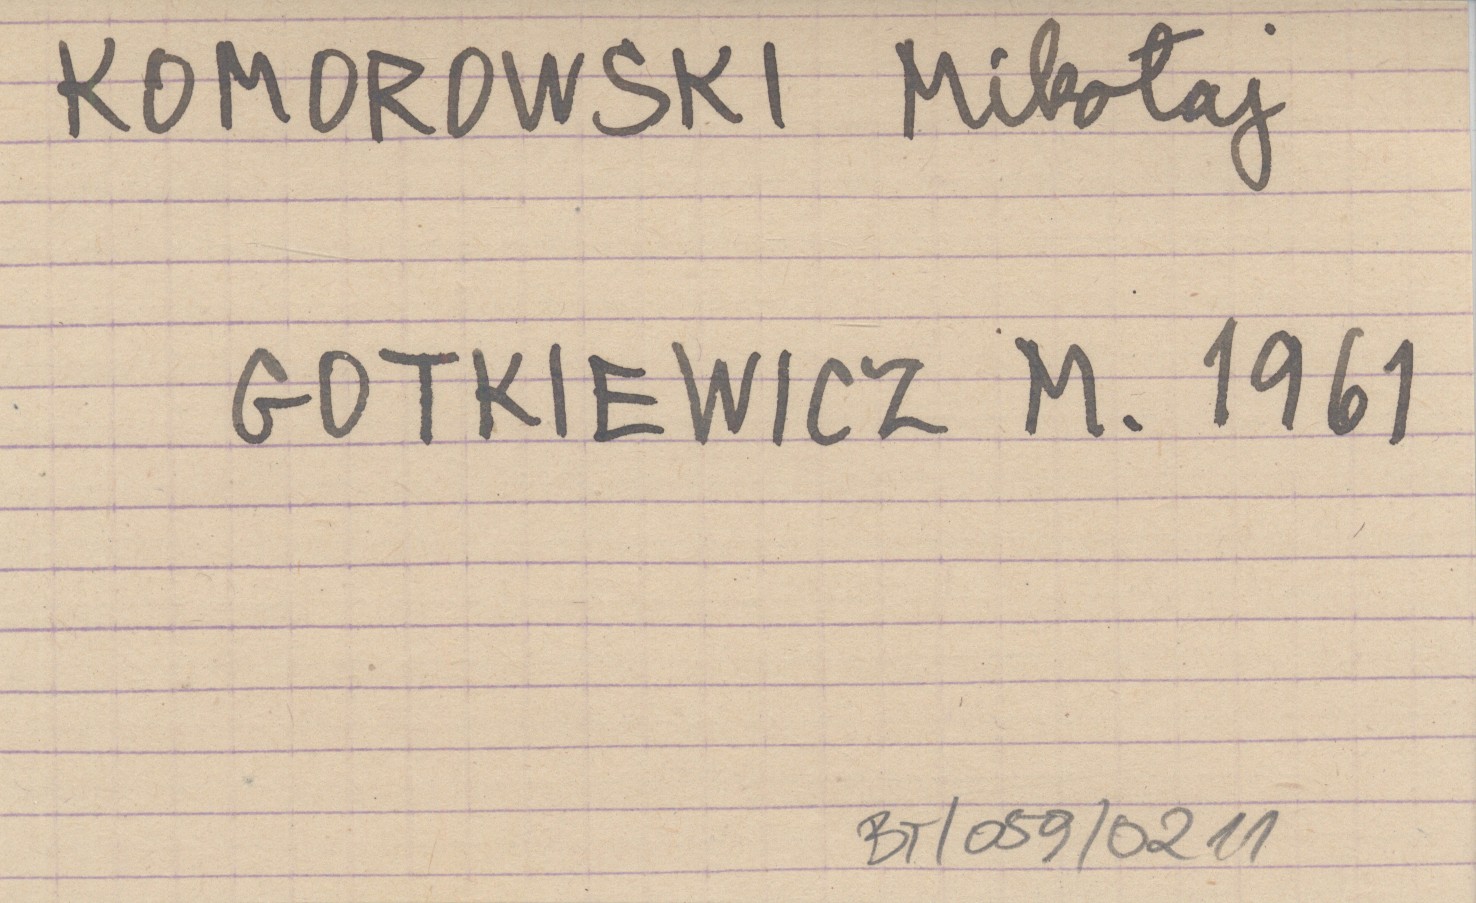 KOMOROWSKI Mikołaj
GOTKIEWICZ M. 1961
BT/059/0211